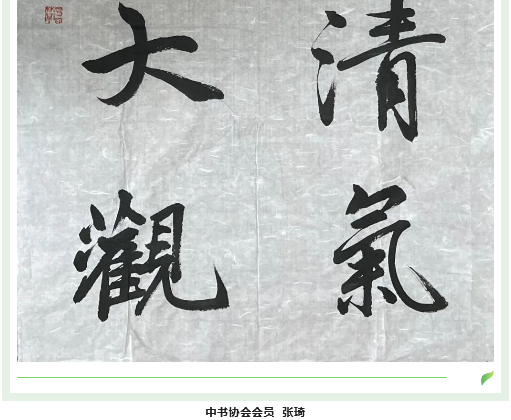 清氣
大觀
中书协会会员 张琦